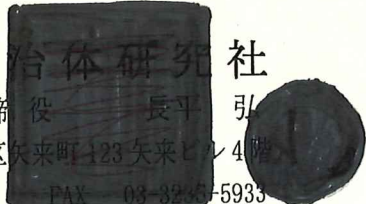 治体研究社
締役 長平 弘
区矢来町 123 矢来ビル 4 階
FAX 03-3235-5933